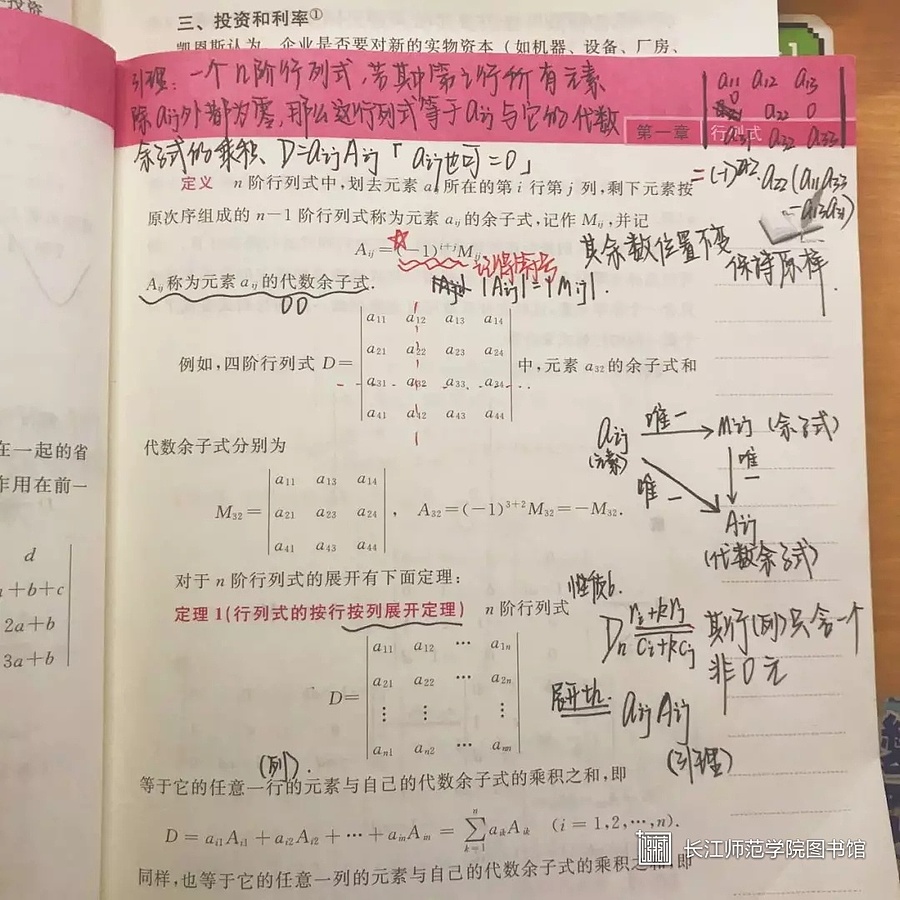 三、投资和利率①
凯恩斯认为，企业是否要对新的实物资本（如机器、设备、厂房、
引理：一个n阶行列式，若其中第i行所有元素
除aij外都为零，那么这行列式等于aij与它的代数
余子式的乘积、D=aijAij「aij也可=0」
第一章 行列式
a11 a12 a13
0 a22 0
a31 a32 a33
a22(a11a33
-a13a31)
定义 n 阶行列式中，划去元素 aij 所在的第 i 行第 j 列，剩下元素按
原次序组成的 n−1 阶行列式称为元素 aij 的余子式，记作 Mij，并记
Aij=(−1)i+jMij
记得符号
其余数位置不变
保持原样
Aij 称为元素 aij 的代数余子式.
|Aij|=|Mij|.
a11 a12 a13 a14
a21 a22 a23 a24
a31 a32 a33 a34
a41 a42 a43 a44
例如，四阶行列式 D= 中，元素 a32 的余子式和
代数余子式分别为
aij 唯一 Mij (余子式)
(元素) 唯一
唯一
Aij
(代数余子式)
a11 a13 a14
M32= a21 a23 a24 ， A32=(−1)3+2M32=−M32.
a41 a43 a44
对于 n 阶行列式的展开有下面定理：
定理 1(行列式的按行按列展开定理) n 阶行列式
性质6.
Dn ri+krj
ci+kcj
某行(列)只含一个
非0元
展开
aijAij
(引理)
a11 a12 ⋯ a1n
D= a21 a22 ⋯ a2n
⋮ ⋮ ⋮
an1 an2 ⋯ ann
(列).
等于它的任意一行的元素与自己的代数余子式的乘积之和，即
D=ai1Ai1+ai2Ai2+⋯+ainAin=∑nk=1aikAik (i=1,2,⋯,n).
同样，也等于它的任意一列的元素与自己的代数余子式的乘积之和，即
在一起的省
作用在前一
d
a+b+c
2a+b
3a+b
长江师范学院图书馆